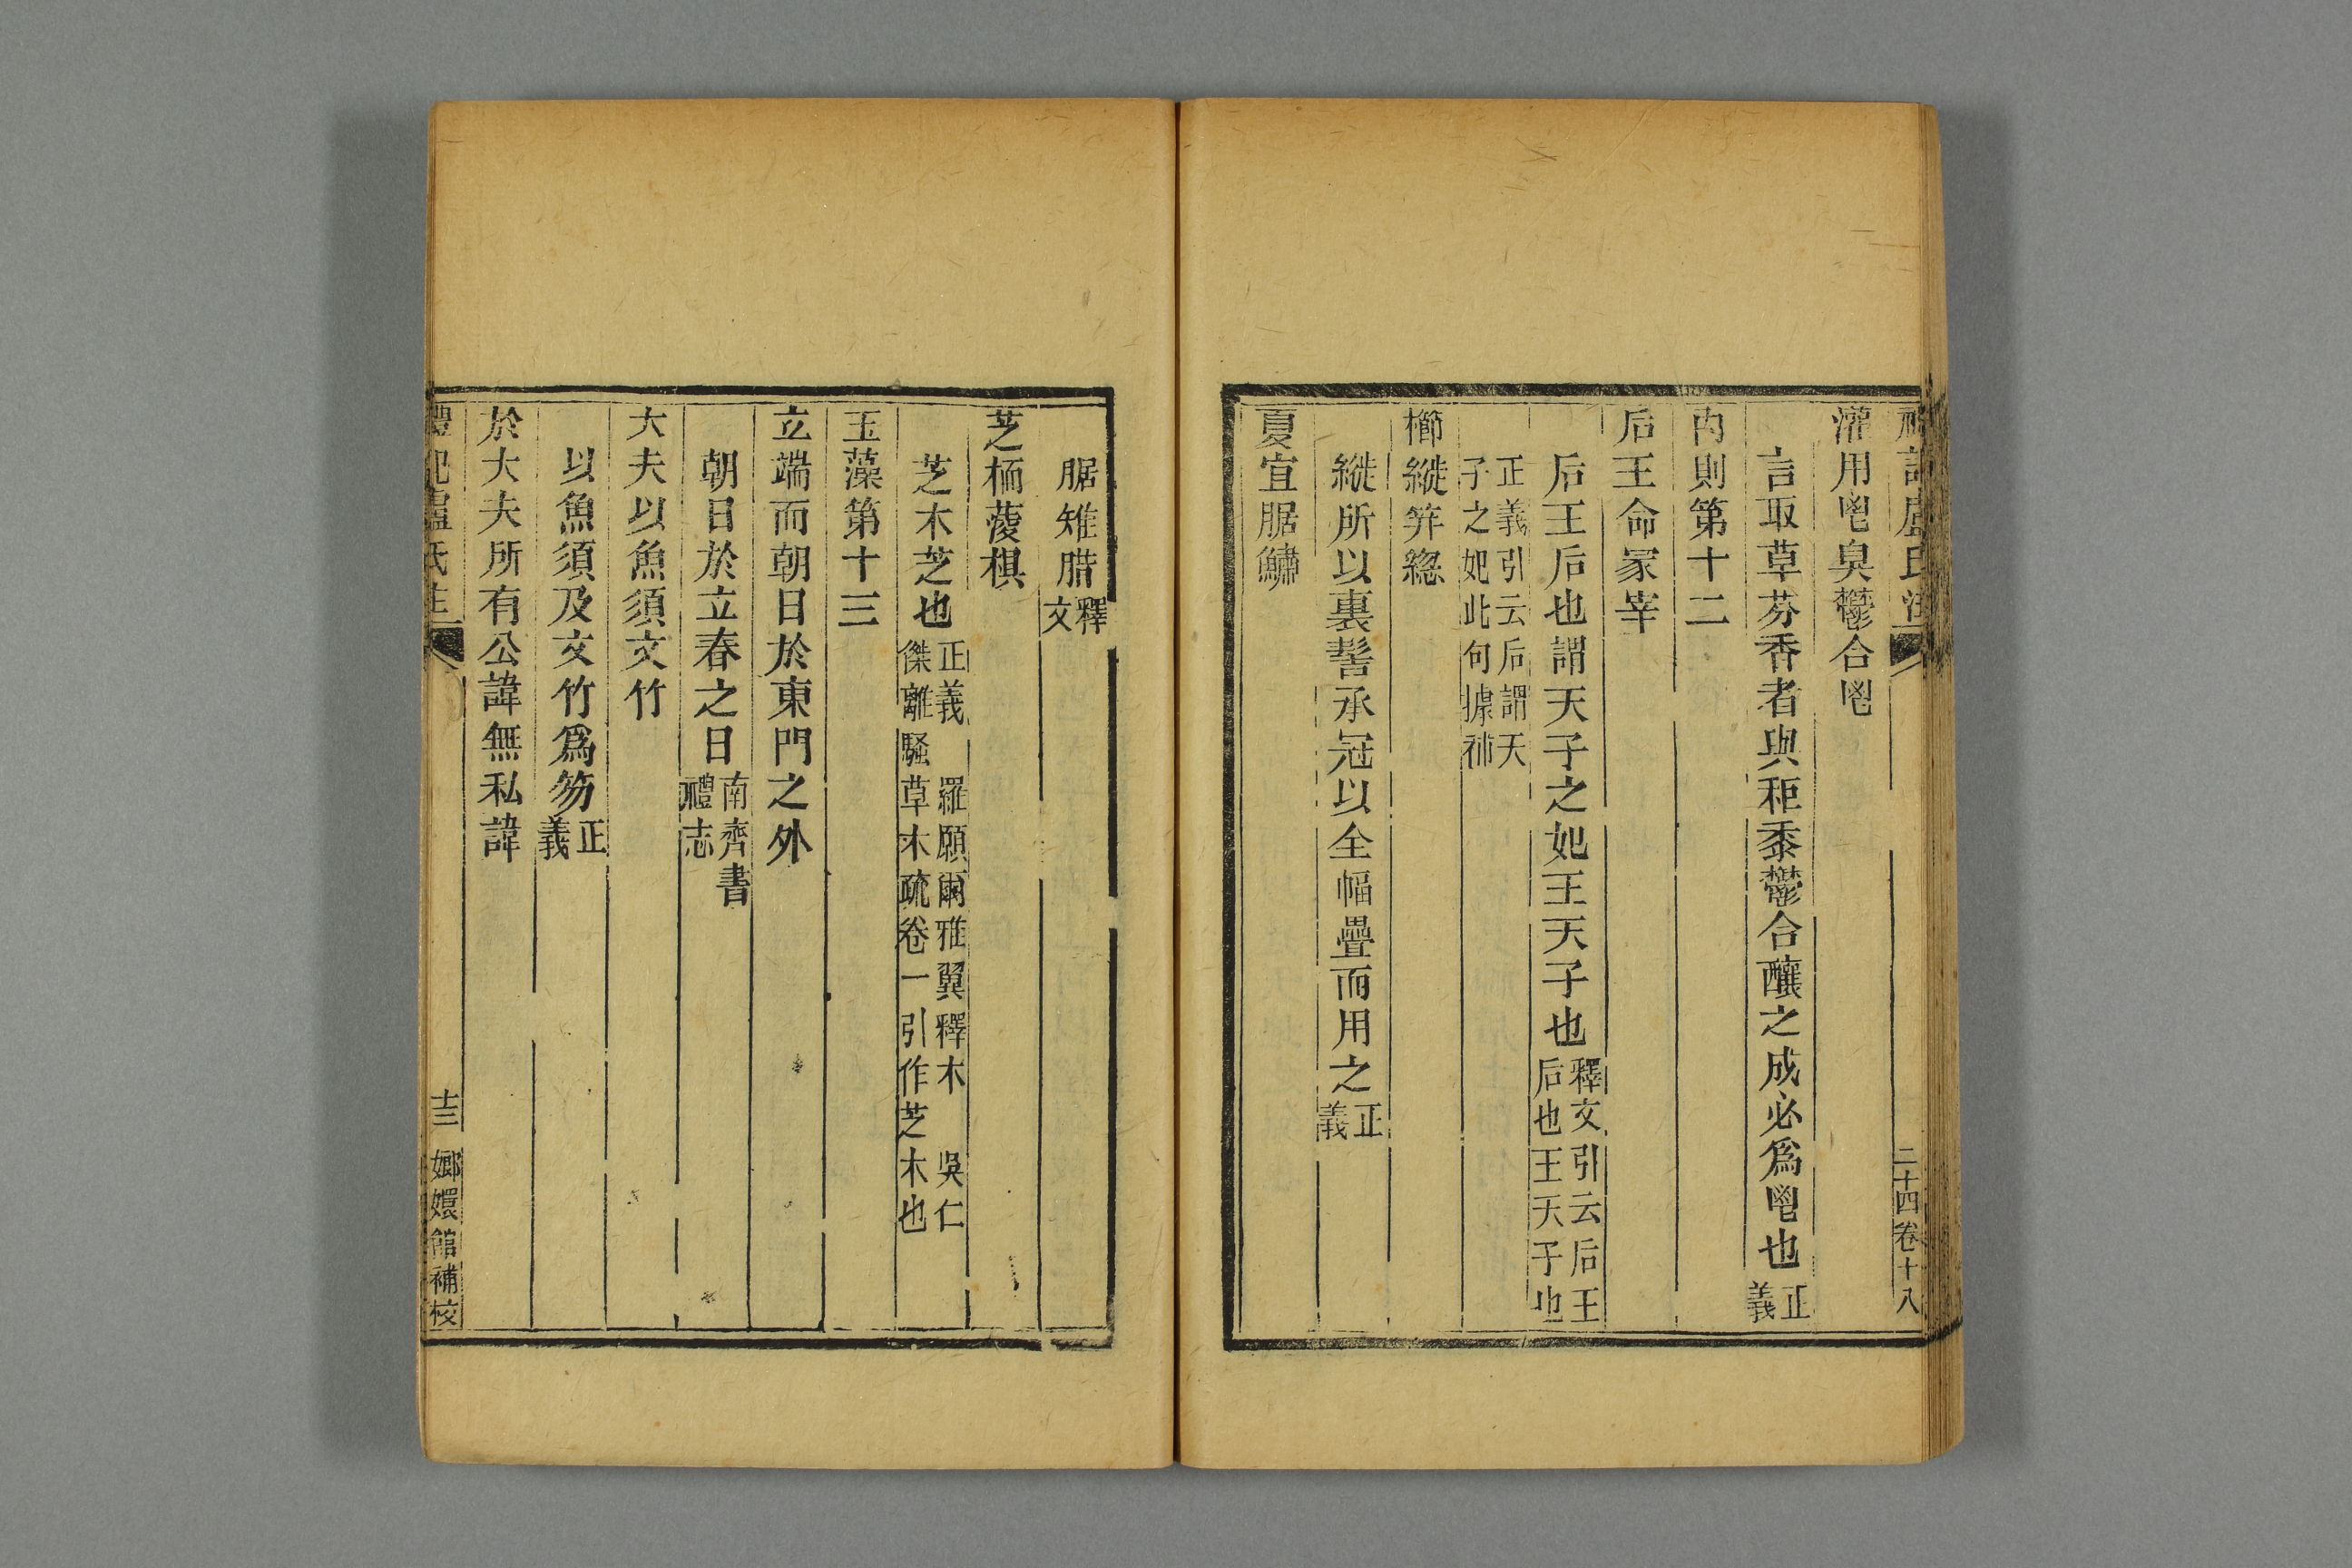 禮記盧氏注 二十四卷十八
灌用鬯臭鬱合鬯
言取草芬香者與秬黍鬱合釀之成必爲鬯也正義
內則第十二
后王命冢宰
后王后也謂天子之妃王天子也釋文引云后王后也王天子也
正義引云后謂天子之妃此句據補
櫛縰笄緫
縰所以裏髻承冠以全幅疊而用之正義
夏宜腒鱐
腒雉腊釋文
芝栭蔆椇
芝木芝也正義 羅願爾雅翼釋木 吳仁傑離騷草木疏卷一引作芝木也
玉藻第十三
立端而朝日於東門之外
朝日於立春之日南齊書禮志
大夫以魚須文竹
以魚須及文竹爲笏正義
於大夫所有公諱無私諱
禮記盧氏注 十三 嫏嬛館補校